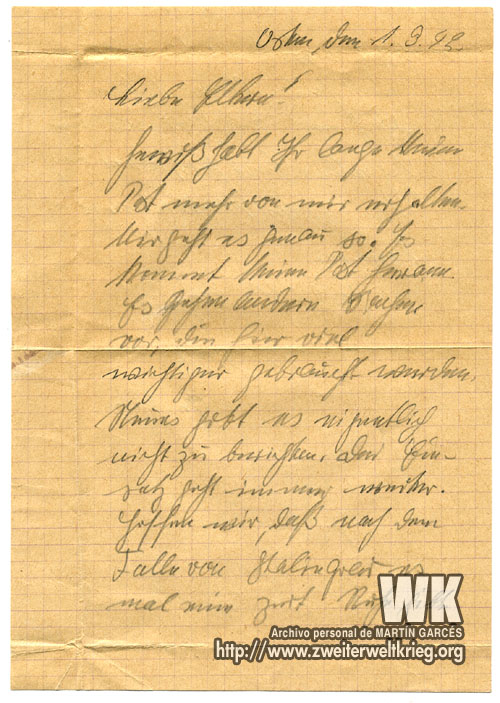 Osten, den 1. 9. 42.
Liebe Eltern!
Gewiß habt Ihr lange keine
Post mehr von mir erhalten.
Mir geht es genau so. Es
kommt keine Post heran.
Es gehen andere Sachen
vor, die hier viel
wichtiger gebraucht werden.
Neues gibt es eigentlich
nicht zu berichten. Der Ein-
satz geht immer weiter.
Hoffen wir, daß nach dem
Falle von Stalingrad es
mal eine Zeit
WK
Archivo personal de MARTÍN GARCÉS
http://www.zweiterweltkrieg.org